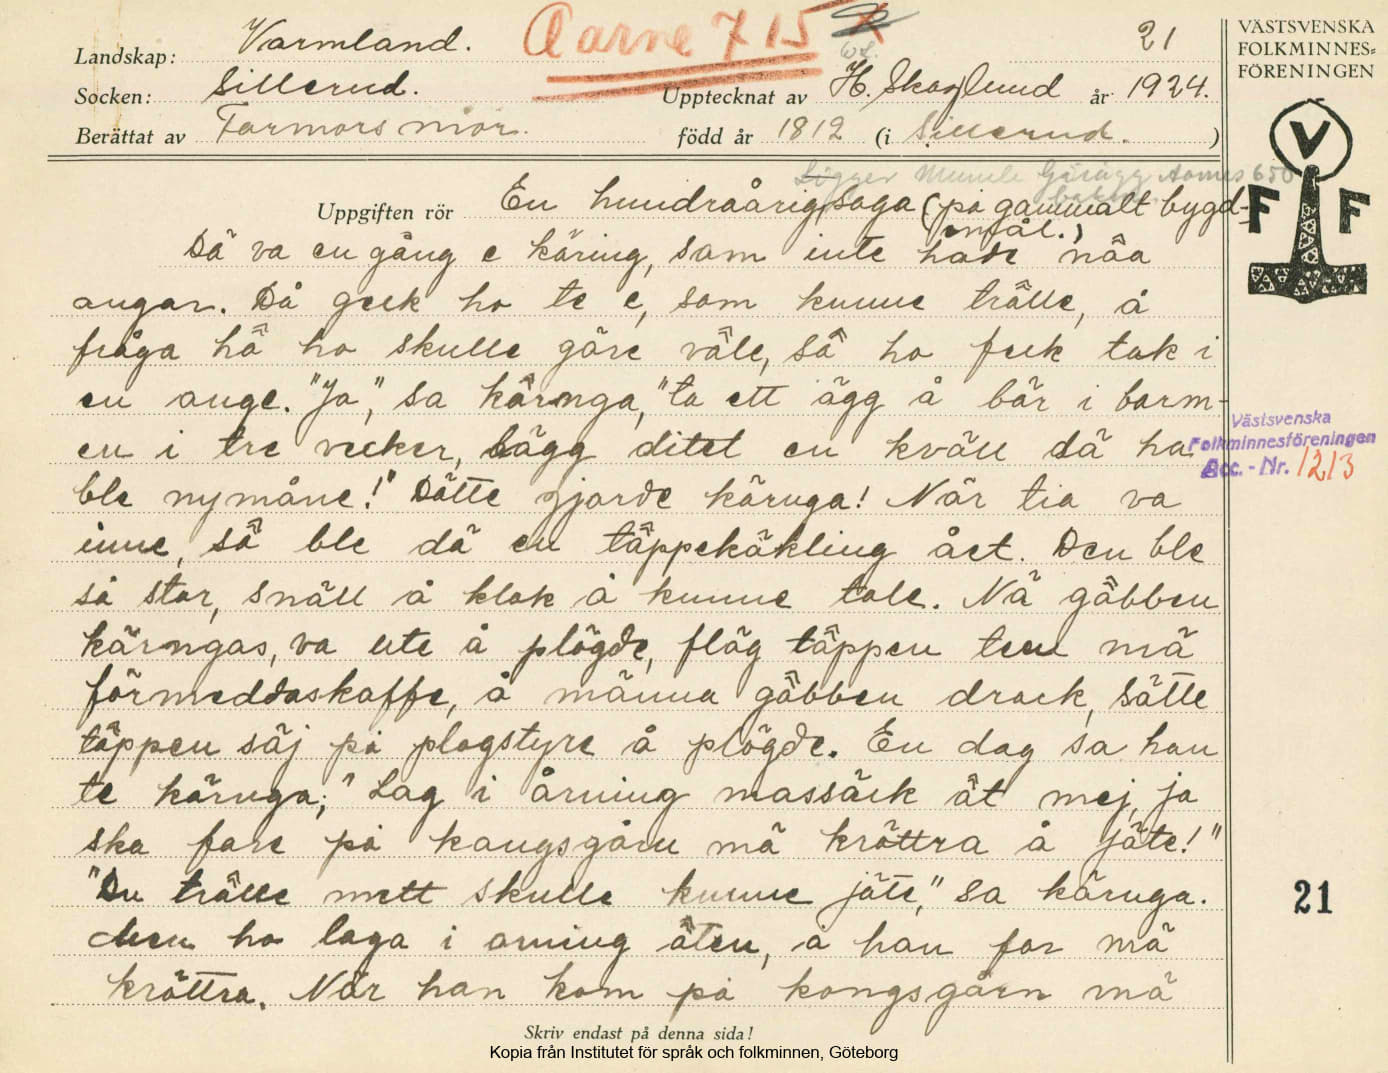 Aarne 715
21
VÄSTSVENSKA
FOLKMINNES=
FÖRENINGEN
Landskap: Varmland.
Socken: Sillerud. Upptecknat av H. Skoglund år 1924.
Berättat av Farmors mor. född år 1812 (i Sillerud.)
Ligger
Uppgiften rör En hundraårig saga (på gammalt bygd-
emål.)
V
F F
Dä va en gång e käring, sam inte hade nôa
ongar. Då geek ho te e, som kunne trôlle, å
fråga hô ho skulle göre väle, sô ho feek tak i
en onge. "Ja", sa kärnga, "ta ett ägg å bär i barm-
en i tre veeker, lägg ditet en kväll dä ha
ble nymåne!" Dätte gjorde käringa! När tia va
inne, sô ble dä en tôppekäkling ået. Den ble
så stor, snäll å klok å kunne tale. Nä gôbben
kärngas, va ute å plögde, flög tôppen teen mä
förmeddaskaffe, å männa gôbben drack, sätte
tôppen säj på plogstyre å plögde. En dag sa han
te käringa; "Lag i årning massäck åt mej, ja
ska fare på kongsgårn mä kröttra å jäte!"
"Du trôlle mett skulle kunne jäte," sa käringa.
Men ho laga i orning åten, å han for mä
kröttra. När han kom på kongsgårn mä
Västsvenska
Folkminnesföreningen
Acc. - Nr. 1213
21
Skriv endast på denna sida!
Kopia från Institutet för språk och folkminnen, Göteborg